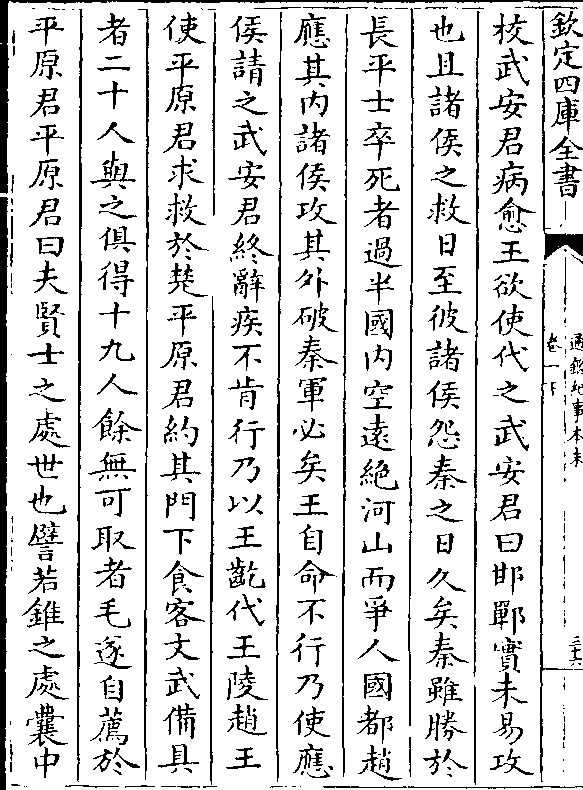 欽定四庫全書
通鑑紀事本末
卷一下
三十六
校武安君病愈王欲使代之武安君曰邯鄲實未易攻
也且諸侯之救日至彼諸侯怨秦之日久矣秦雖勝於
長平士卒死者過半國内空遠絶河山而爭人國都趙
應其内諸侯攻其外破秦軍必矣王自命不行乃使應
侯請之武安君終辭疾不肯行乃以王齕代王陵趙王
使平原君求救於楚平原君約其門下食客文武備具
者二十人與之俱得十九人餘無可取者毛遂自薦於
平原君平原君曰夫賢士之處世也譬若錐之處囊中